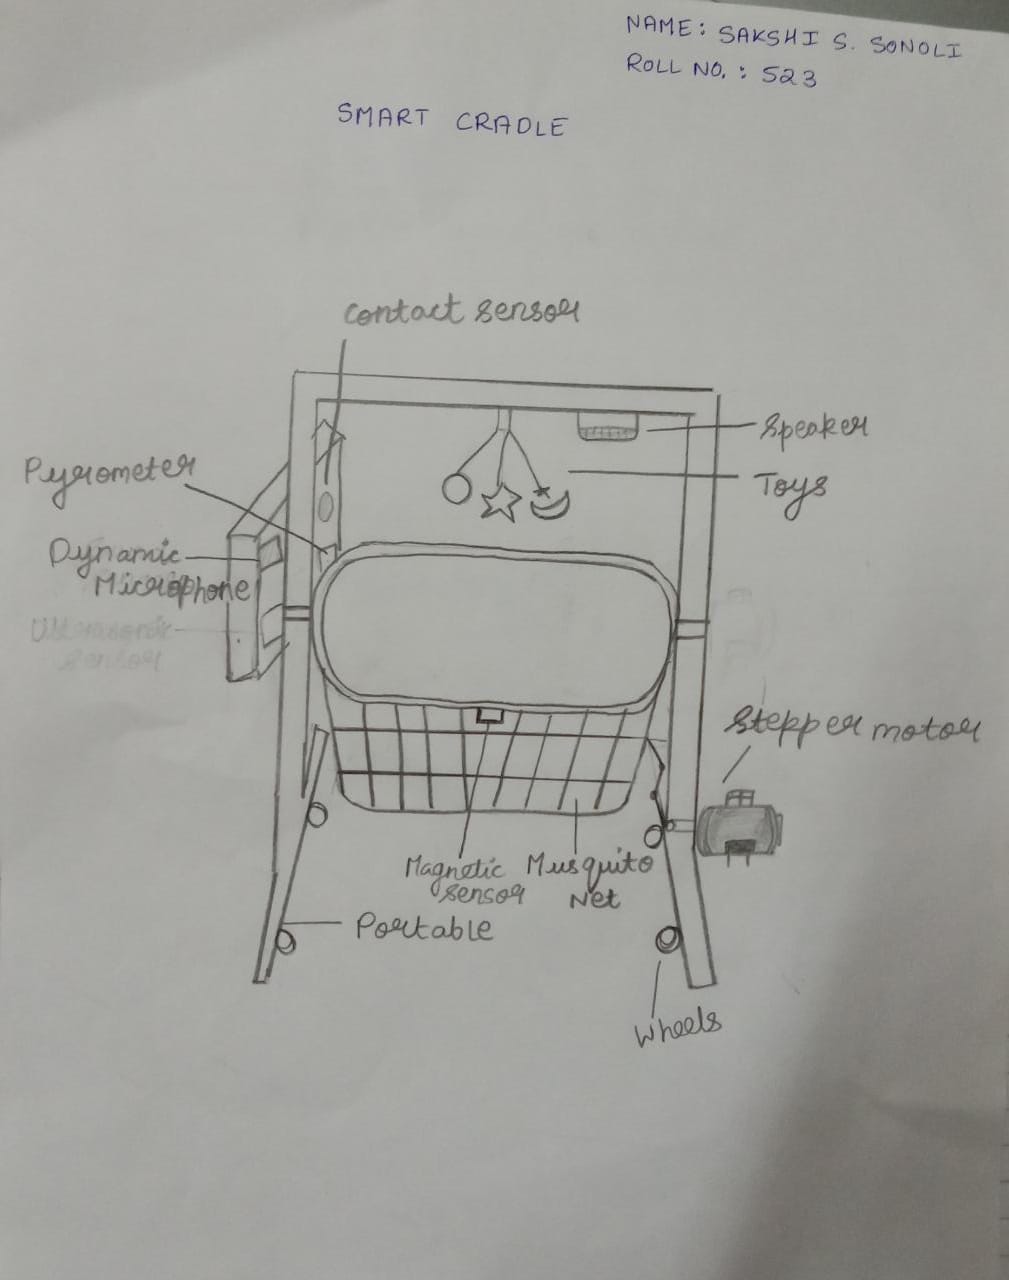 NAME: SAKSHI S. SONOLI
ROLL NO.: 523
SMART CRADLE
Contact sensor
Speaker
Pyrometer
Toys
Dynamic
Microphone
Ultrasonic
Sensor
Stepper motor
Magnetic
Sensor
Musquito
Net
Portable
Wheels